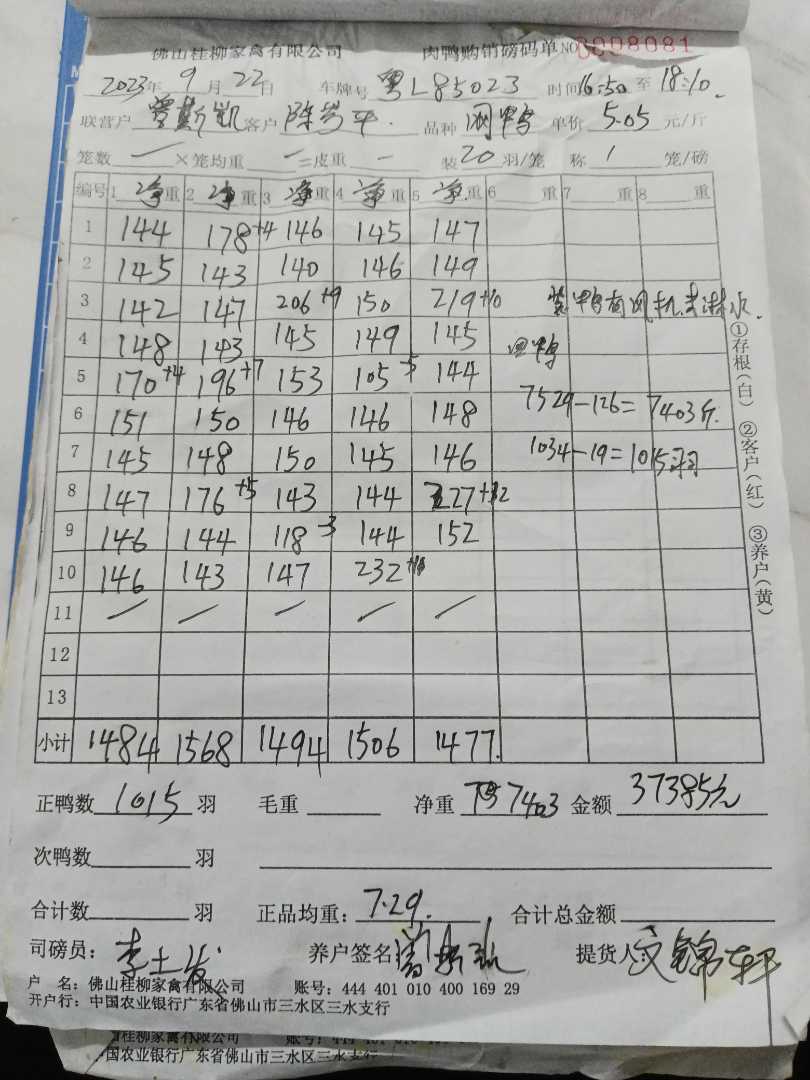 佛山桂柳家禽有限公司 肉鸭购销磅码单 NO 0008081
2023年 9月 22日 车牌号 粤L85023 时间 16:50 至 18:10.
联营户 凯 客户 陈 平 品种 鸭 单价 5.05 元/斤
笼数 / ×笼均重 / =皮重 / 装 20 羽/笼 称 1 笼/磅
编号 1 净重 2 净重 3 净重 4 净重 5 净重 6 重 7 重 8 重
1 144 178+4 146 145 147
2 145 143 140 146 149
3 142 147 206+9 150 219+10 装鸭有风机 淋水.
4 148 143 145 149 145 鸭
5 170+4 196+7 153 105-5 144
6 151 150 146 146 148 7529-126=7403斤.
7 145 148 150 145 146 1034-19=1015羽
8 147 176+5 143 144 227+12
9 146 144 118-3 144 152
10 146 143 147 232
11 / / / / /
12
13
小计 1484 1568 1494 1506 1477.
①存根(白) ②客户(红) ③养户(黄)
正鸭数 1015 羽 毛重 净重 7403 金额 37385元
次鸭数 羽
合计数 羽 正品均重: 7.29. 合计总金额
司磅员: 李土 养户签名: 提货人: 文锦轩
户 名: 佛山桂柳家禽有限公司 账号: 444 401 010 400 169 29
开户行: 中国农业银行广东省佛山市三水区三水支行
桂柳家禽有限公司 账号: 444 401 010
国农业银行广东省佛山市三水区三水支行